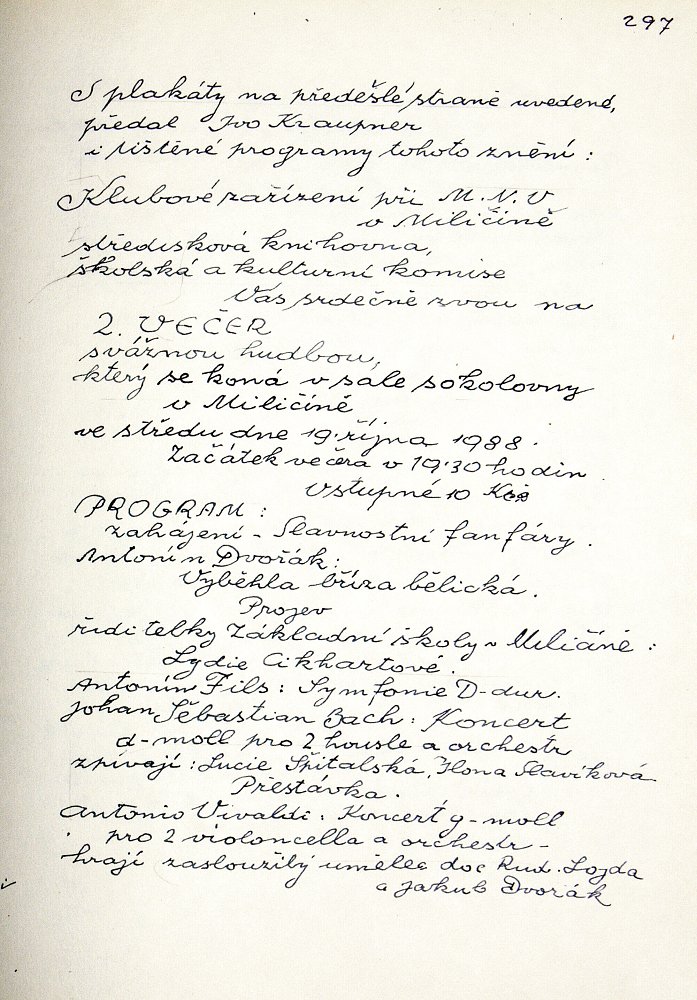 297
S plakáty na předešlé straně uvedené,
předal Ivo Kraupner
i tištěné programy tohoto znění :
Klubové zařízení při M.N.V
v Miličíně
středisková knihovna,
školská a kulturní komise
Vás srdečně zvou na
2. VEČER
s vážnou hudbou,
který se koná v sále sokolovny
v Miličíně
ve středu dne 19. října 1988.
Začátek večera v 19.30 hodin.
Vstupné 10 Kčs
PROGRAM :
zahájení - Slavnostní fanfáry.
Antonín Dvořák:
Vyběhla bříza bělická.
Projev
ředitelky Základní školy v Miličíně :
Lydie Cikhartové.
Antonín Fils : Symfonie D-dur.
Johan Sebastian Bach : Koncert
d-moll pro 2 housle a orchestr
zpívají : Lucie Špitalská, Ilona Slavíková
Přestávka.
Antonio Vivaldi : Koncert g-moll
pro 2 violoncella a orchestr -
hrají zasloužilý umělec doc Rud. Lojda
a Jakub Dvořák